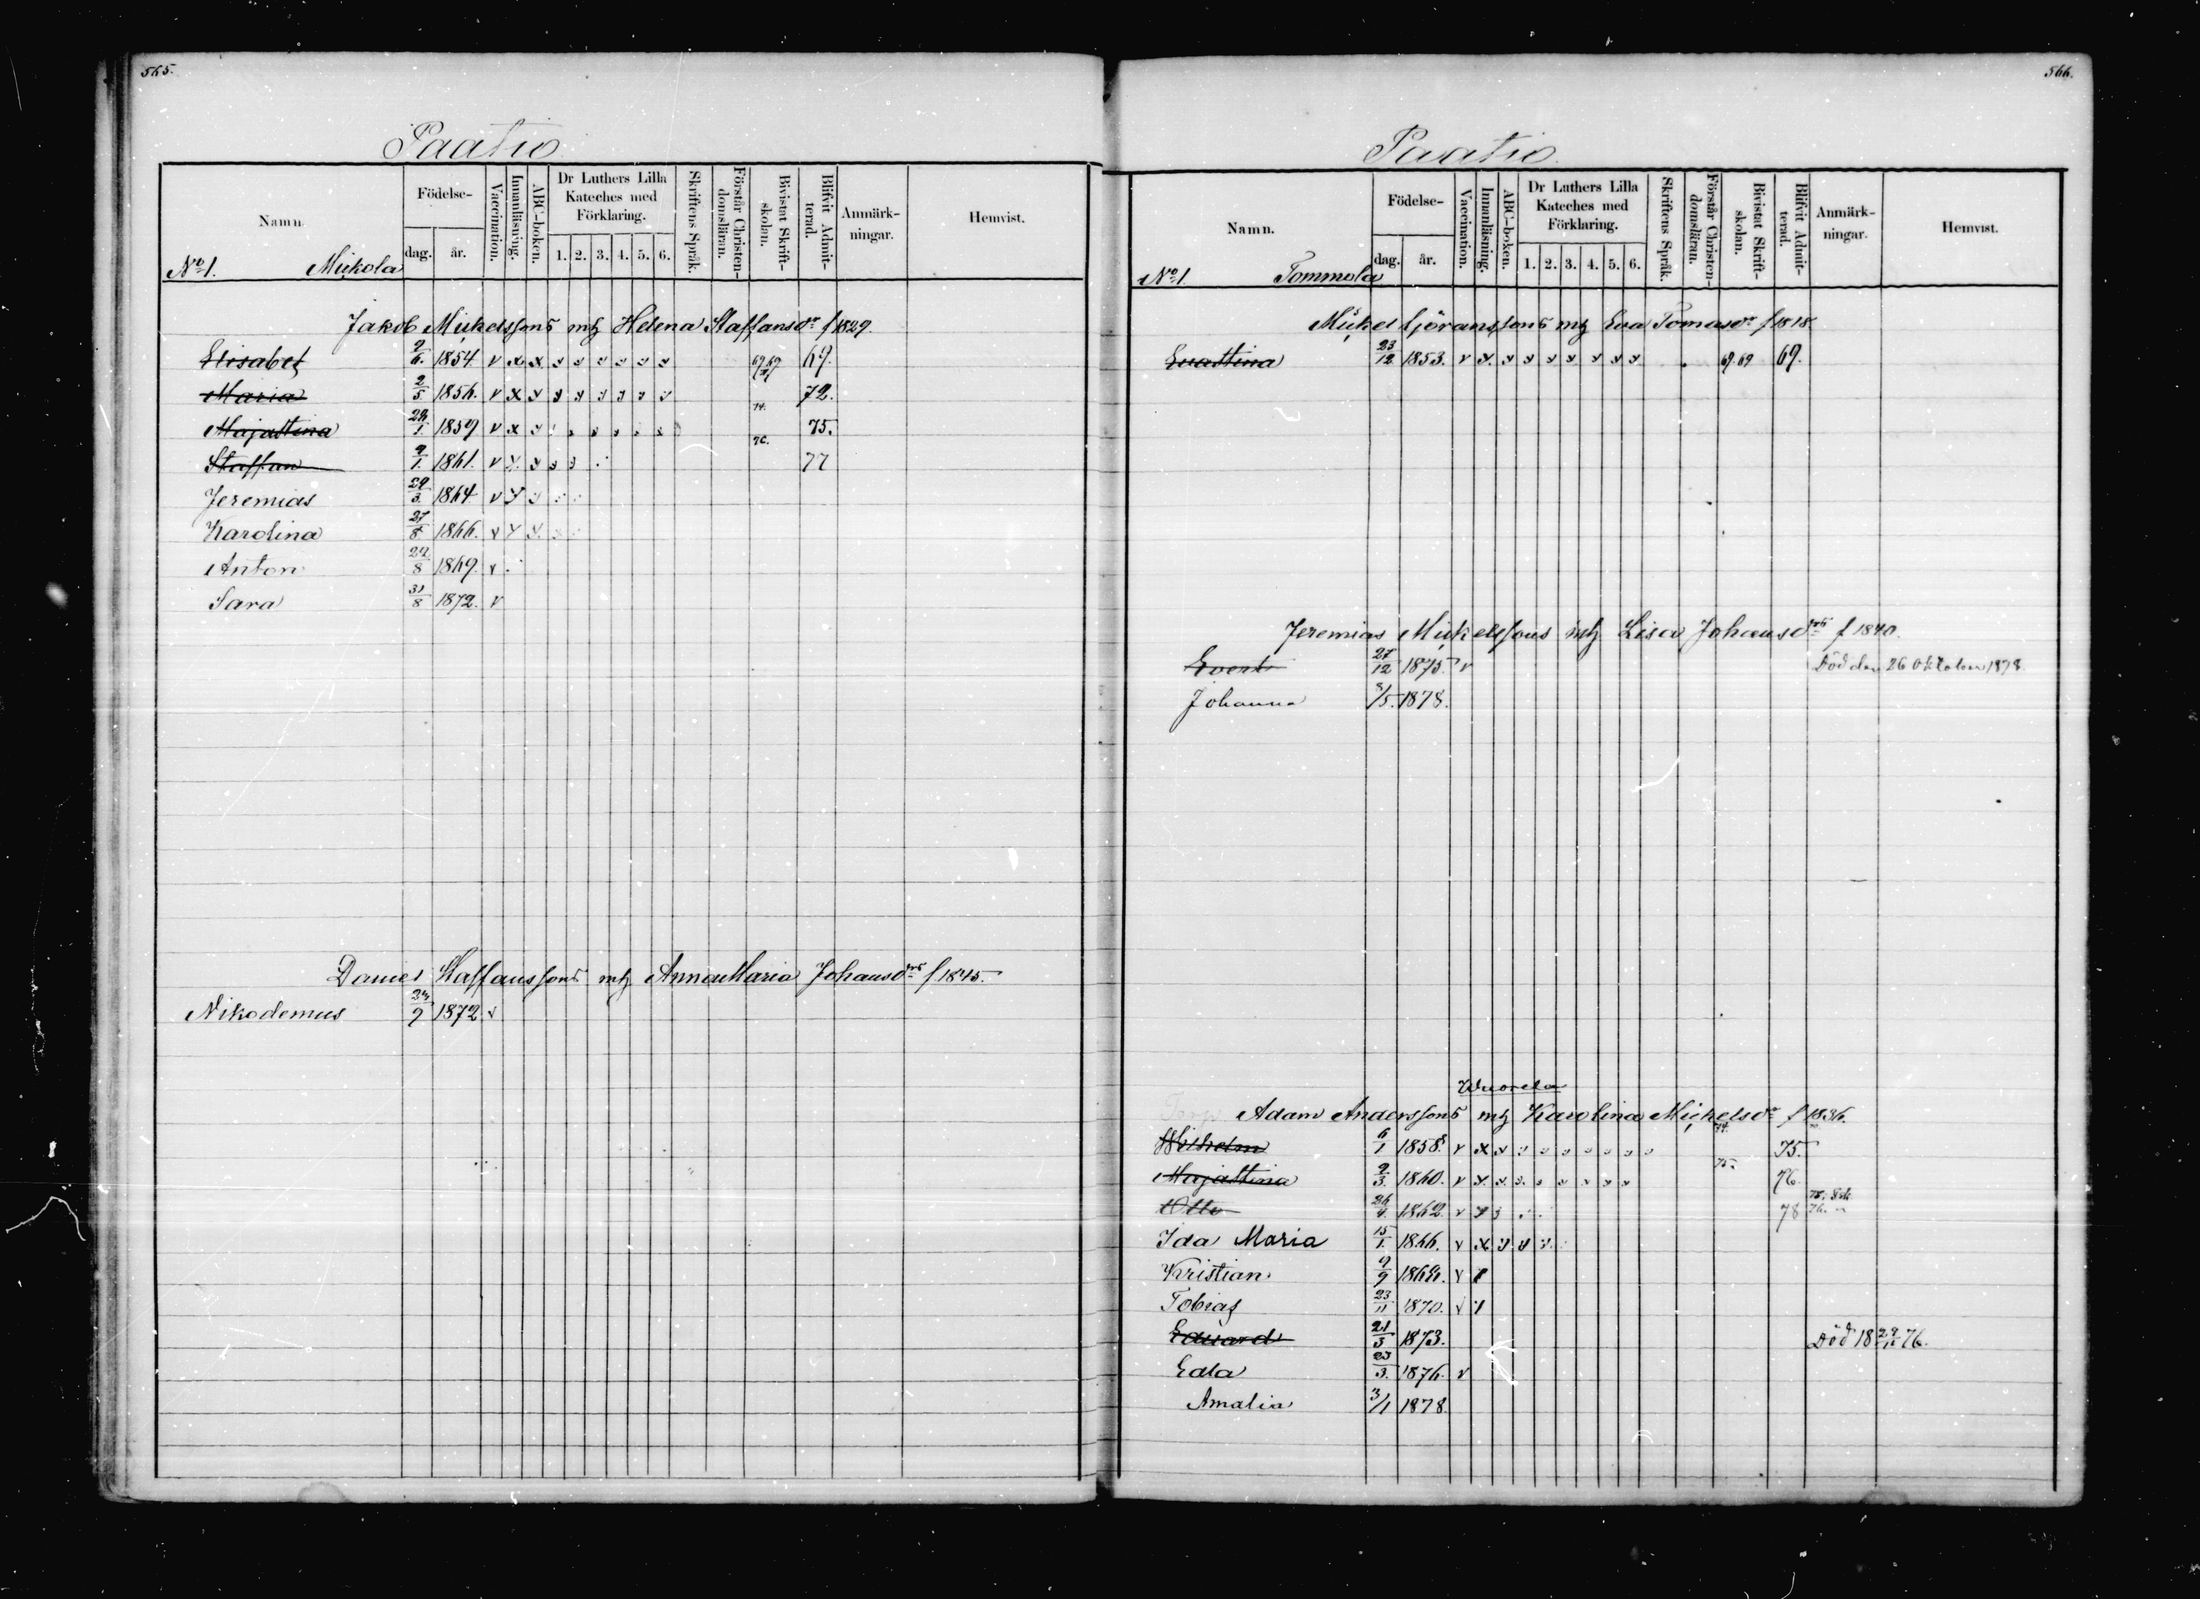 565.
Paatio
Namn.
Födelse-
dag. år.
Vaccination.
Innanläsning.
ABC-boken.
Dr Luthers Lilla Kateches med Förklaring.
1. 2. 3. 4. 5. 6.
Skriftens Språk.
Förstår Christendomsläran.
Bivistat Skriftskolan.
Blifvit Admitterad.
Anmärkningar.
Hemvist.
No 1. Mickola
Jakob Mickelssons mh Helena Staffansdr f 1829.
Elisabet 2/6. 1854 v x x 69 69.
Maria 2/5 1856. v x 72.
Majastina 24/1. 1859 v x 74. 75.
Staffan 9/1. 1861. v 76. 77
Jeremias 29/3. 1864 v
Karolina 27/8 1866. v
Anton 22/8 1869. v
Sara 31/8 1872. v
Daniel Staffanssons mh Anna Maria Johansdrs f 1845.
Nikodemus 24/9 1872 v
566.
Paatio.
Namn.
Födelse-
dag. år.
Vaccination.
Innanläsning.
ABC-boken.
Dr Luthers Lilla Kateches med Förklaring.
1. 2. 3. 4. 5. 6.
Skriftens Språk.
Förstår Christendomsläran.
Bivistat Skriftskolan.
Blifvit Admitterad.
Anmärkningar.
Hemvist.
No 1. Tommola
Mickel Göranssons mh Eva Tomasdr f 1818.
Evastina 23/12 1853. v x 69. 69 69.
Jeremias Mickelssons mh Lisa Johansdrs f 1840.
Evert 27/12 1875 v Död den 26 Oktober 1878.
Johanna 3/5. 1878.
Wuorela
Adam Anderssons mh Karolina Mickelsdr f 1836.
Wilhelm 6/1 1858. v x 74. 75.
Majastina 2/3. 1860. v x 75. 76.
Otto 26/4. 1862. v 78
Ida Maria 15/1. 1866. v x
Kristian 9/9 1868. v
Tobias 23/11 1870. v
Eduard 21/3 1873. Död 18 29/12 76.
Edla 23/3. 1876. v
Amalia 3/1 1878.